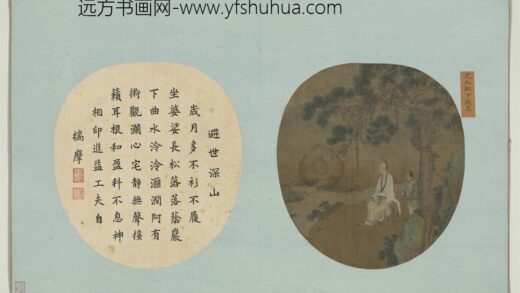 远方书画网-www.yfshuhua.com
元人松下
避世深山
歲月多不衫不履
坐婆娑長松落落蔭巖
下曲水泠泠滙澗阿有
術觀瀾心宅靜無聲接
籟耳根和盈科不息神
相印進益工夫自
揣摩